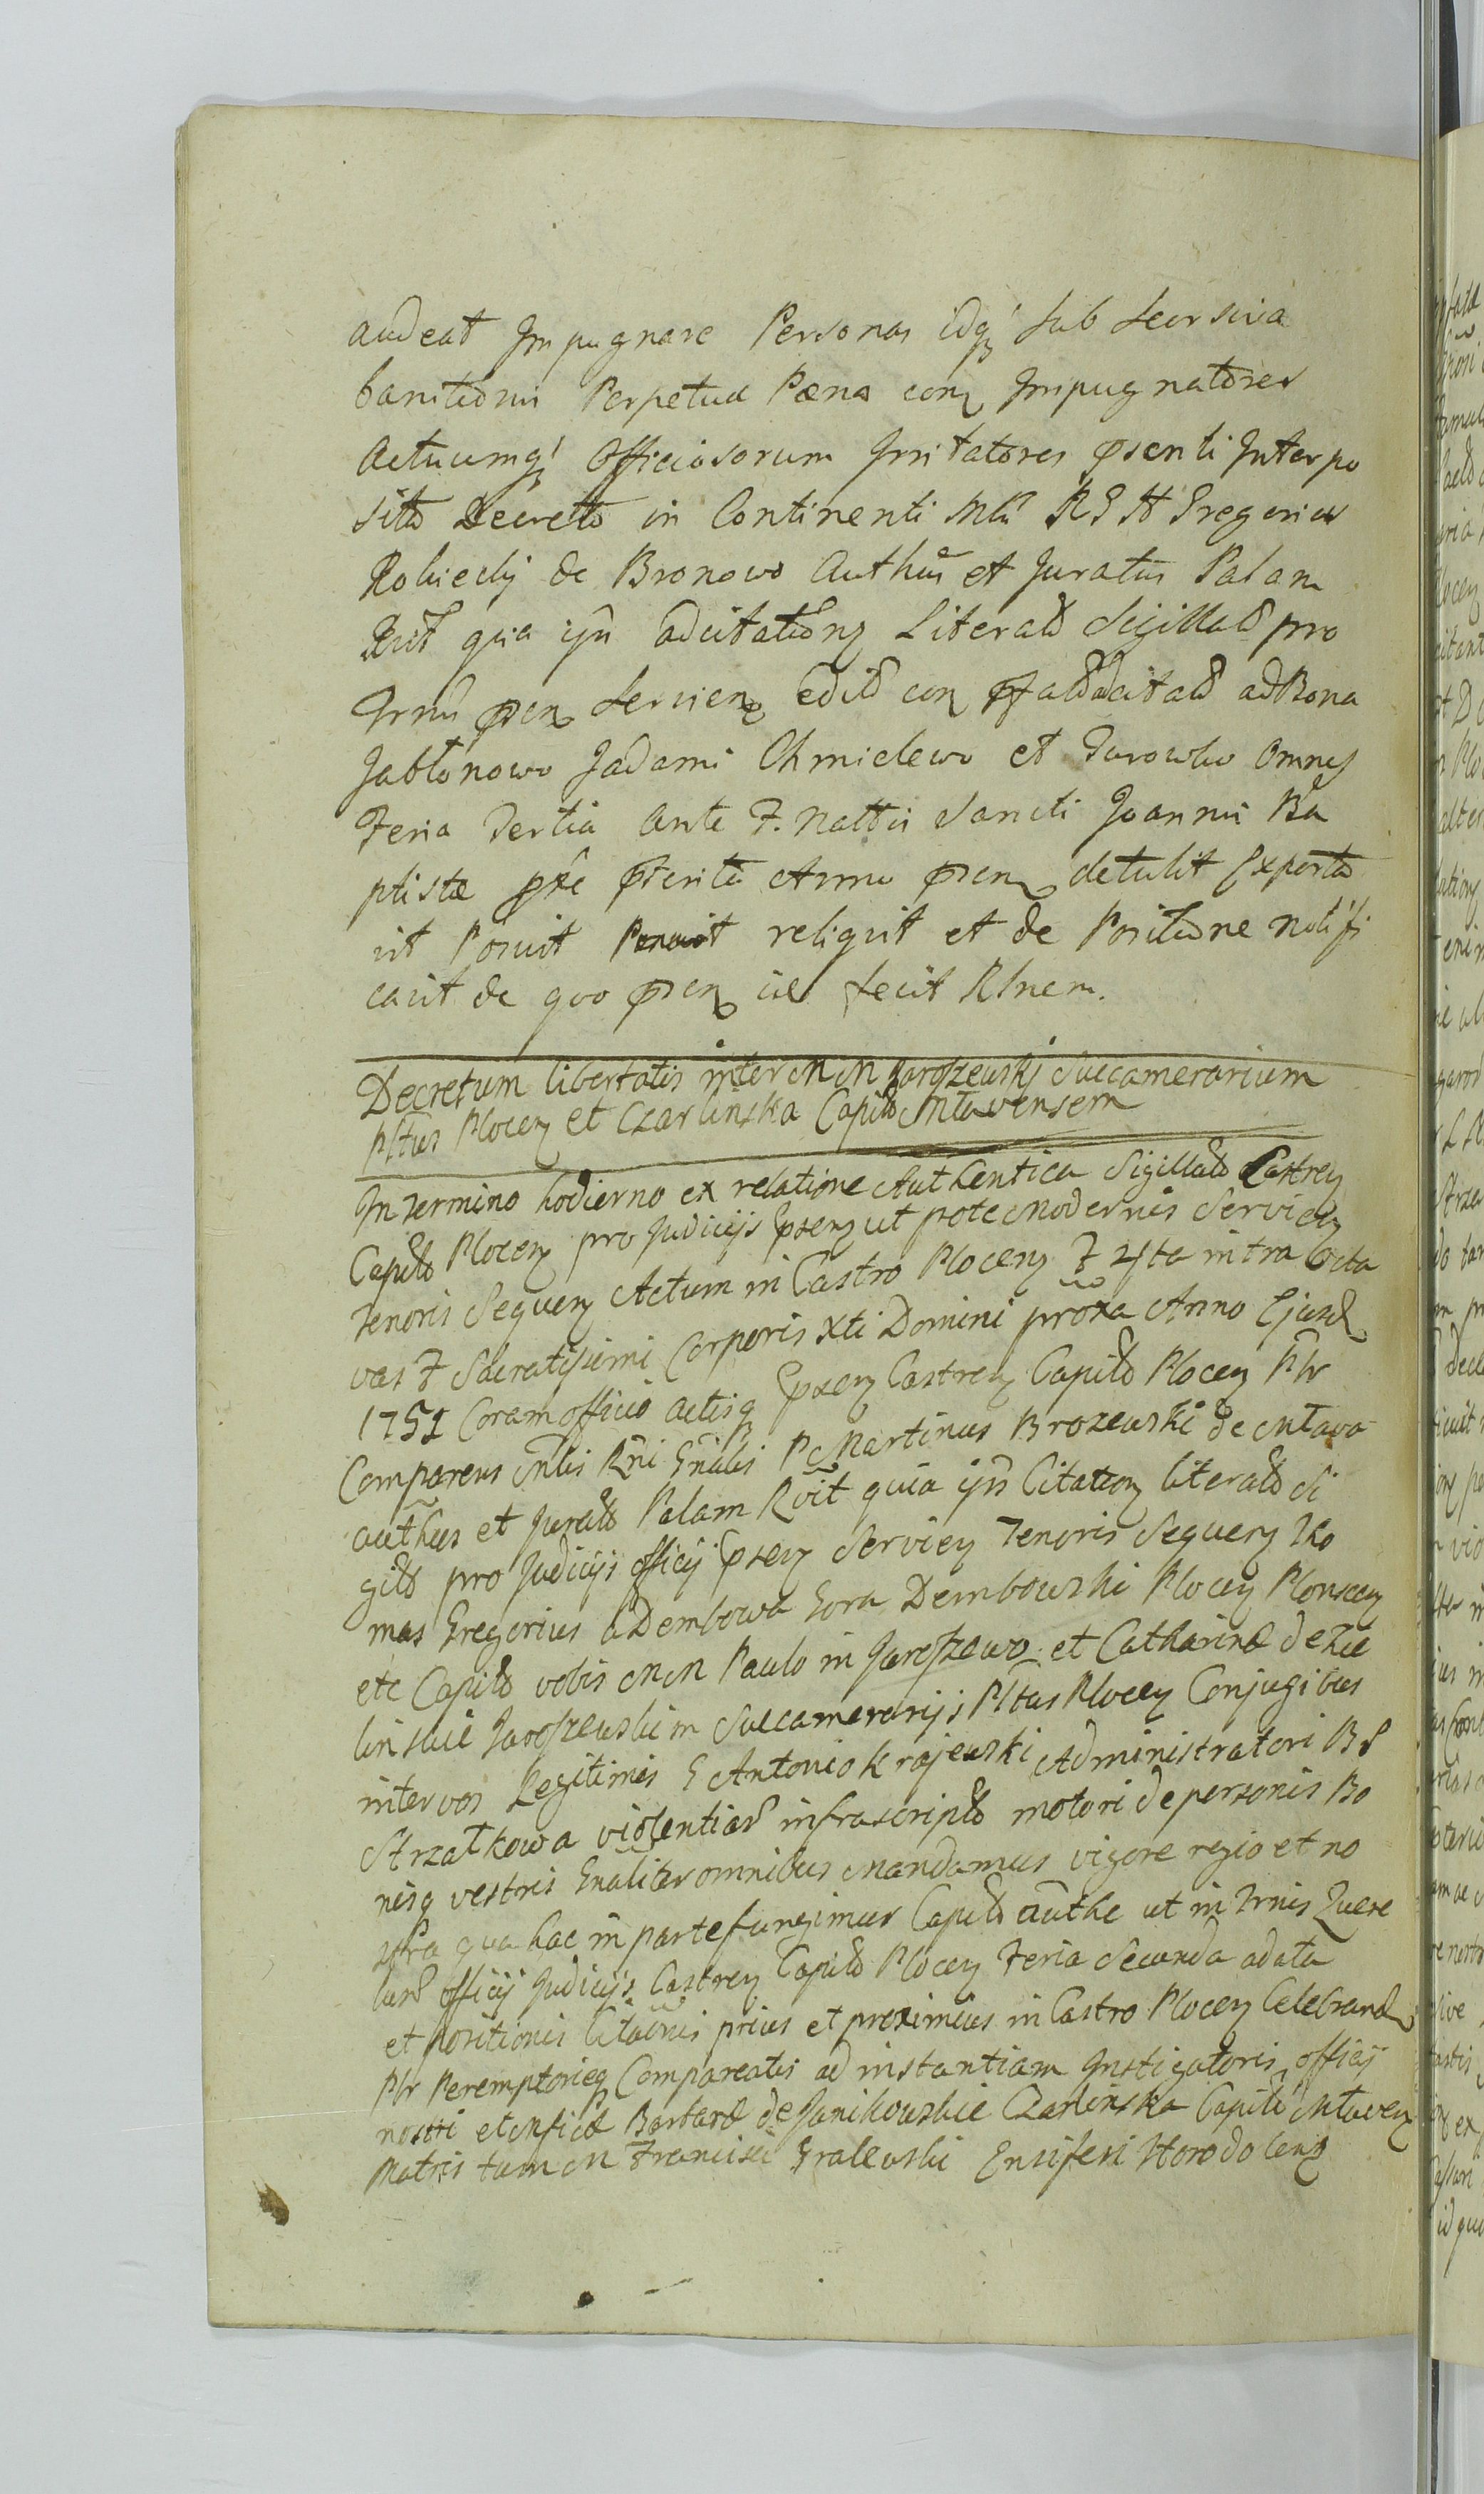 audeat Impugnare Personas idq' sub seorsiva
banitionis Perpetuæ Pæna eorq Impugnatores
Actuumq' Officiosorum Irritatores pńsenti Interpo
sitto Decretto in Continenti Mtŭ R G H Gregorius
Robiecky de Bronowo Authūs et Juratus Palam
Rvit quia ijn adcitationq Literald Sigillad pro
Trnis pńsenq Servienq edild con pfatd adcitald ad Bona
Jabłonowo Jadami Chmielewo et Turowko omnes
Feria Tertia ante F. Natttis Sancti Joannis Ba
ptistæ præterito Anno pńsenq detulit Exporta
vit Posuit reliquit et de Positione notifi
cavit de quo pńsenq fecit Rlnem.
Decretum libertatis inter M M Jaroszewski Succamerarium
Plttus Plocen et Czarlinska Capitd Mtavensem
In Termino hodierno ex relatione Authentica Sigillatd Castren
Capitd Plocen pro Judicijs Epsenq ut pote Modernis Servien
Tenoris Sequenq Actum in Castro Plocen F 4ta intra Octa
vas F Sacratissimi Corporis Xti Domini proxa Anno Ejusd
1751 Coram officio actisq Epsenq Castrenq Capitd Plocen Plr
Comparens Mtlis Rni Gnalis P Martinus Brozewski de Mtava
authus et Juratd Palam Rvit quia ijn Citationq literald Si
gitd pro Judicijs officij Epsenq Servien Tenoris Sequenq Tho
mas Gregorius a Dembowa Gora Dembowski Plocen Plonscen
etc Capitd vobis M M Paulo in Jaroszewo et Catharinæ de Zie
linskie Jaroszewskim Succamerarijs Plttus Plocen Conjugibus
inter vos Legitimis G Antonio Krajewski Administratori B S
Strzałkowa violentiar infrascriptd motori de personis Bo
nisq vestris Gnaliter omnibus Mandamus vigore regio et no
stra qua hac in parte fungimur Capitd authe ut in Trnis Quere
lard officij Judicijs Castren Capitd Plocen Feria Secunda a data
et positionis Citaonis prius et proximius in Castro Plocen Celebrand
Plr Peremptorieq Compareatis ad instantiam Instigatoris officij
nostri et Mficæ Barbaræ de Janikowskie Czarlinska Capitd Mtaven
Matris tum M Francisci Gralewski Ensiferi Horodolenq